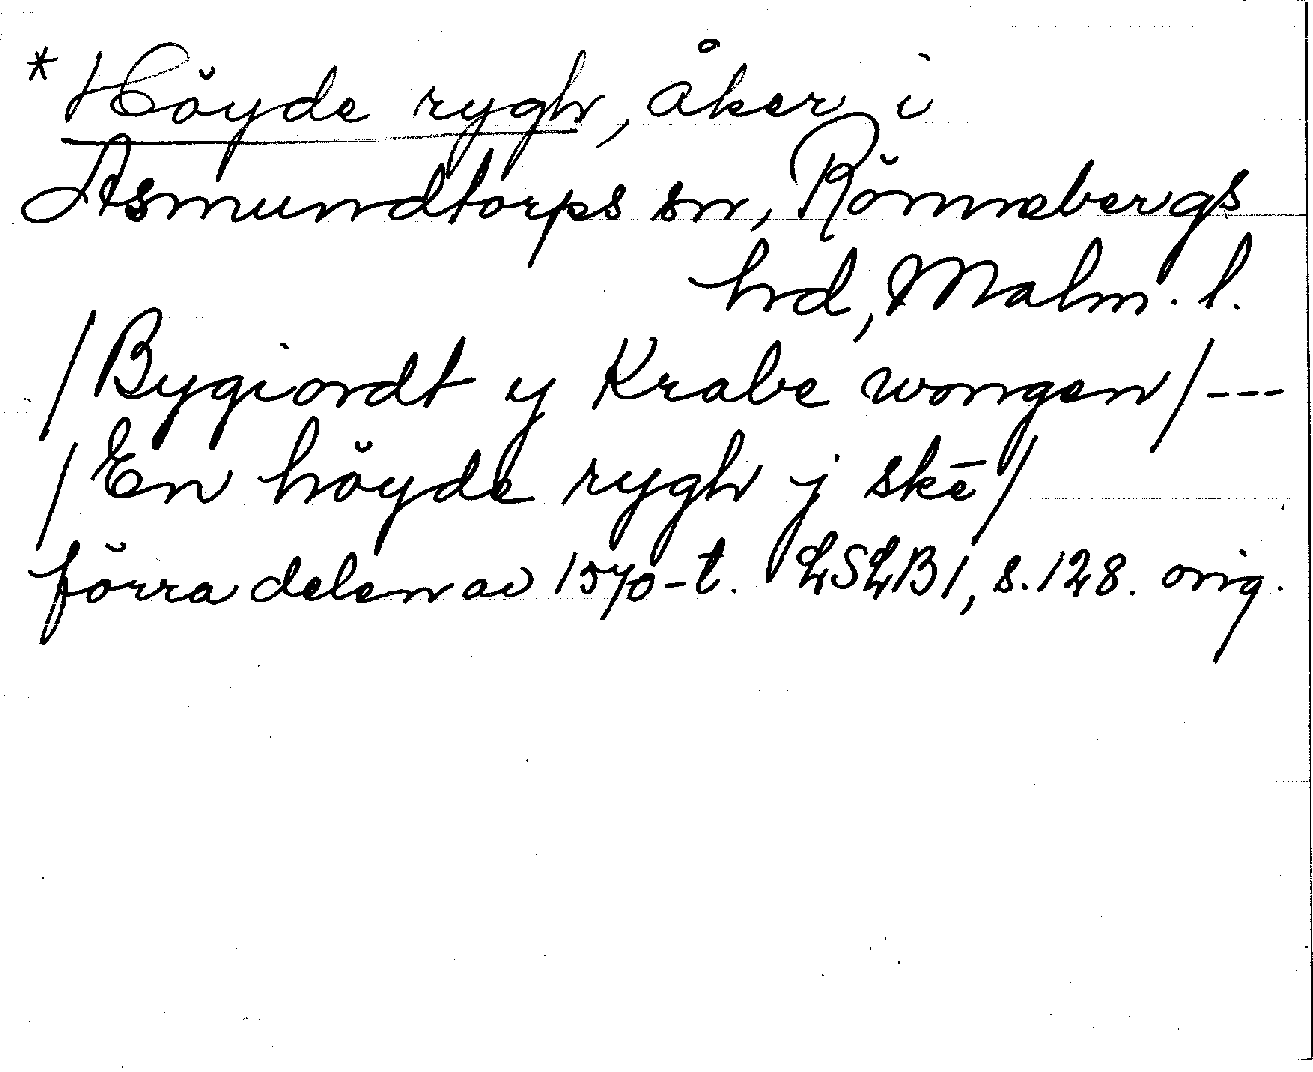 * Höyde rygh, åker i
Asmundtorps sn, Rönnebergs
hd, Malm. l.
/Bygiordt y Krabe wongen/---
/En höyde rygh j skē/
förra delen av 1570-t. LSLB1, s. 128. orig.